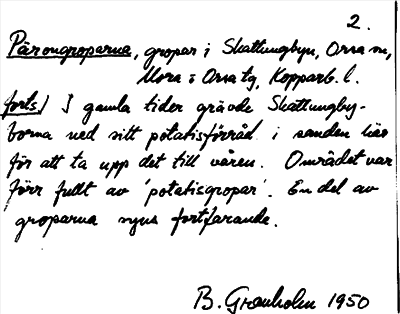 2.
Pärongroparna, gropar i Skattungbyn, Orsa sn,
Mora o Orsa tg, Kopparb. l.
forts./ I gamla tider grävde Skattungby-
borna ned sitt potatisförråd i sanden här
för att ta upp det till våren. Området var
förr fullt av 'potatisgropar'. En del av
groparna syns fortfarande.
B. Granholm 1950